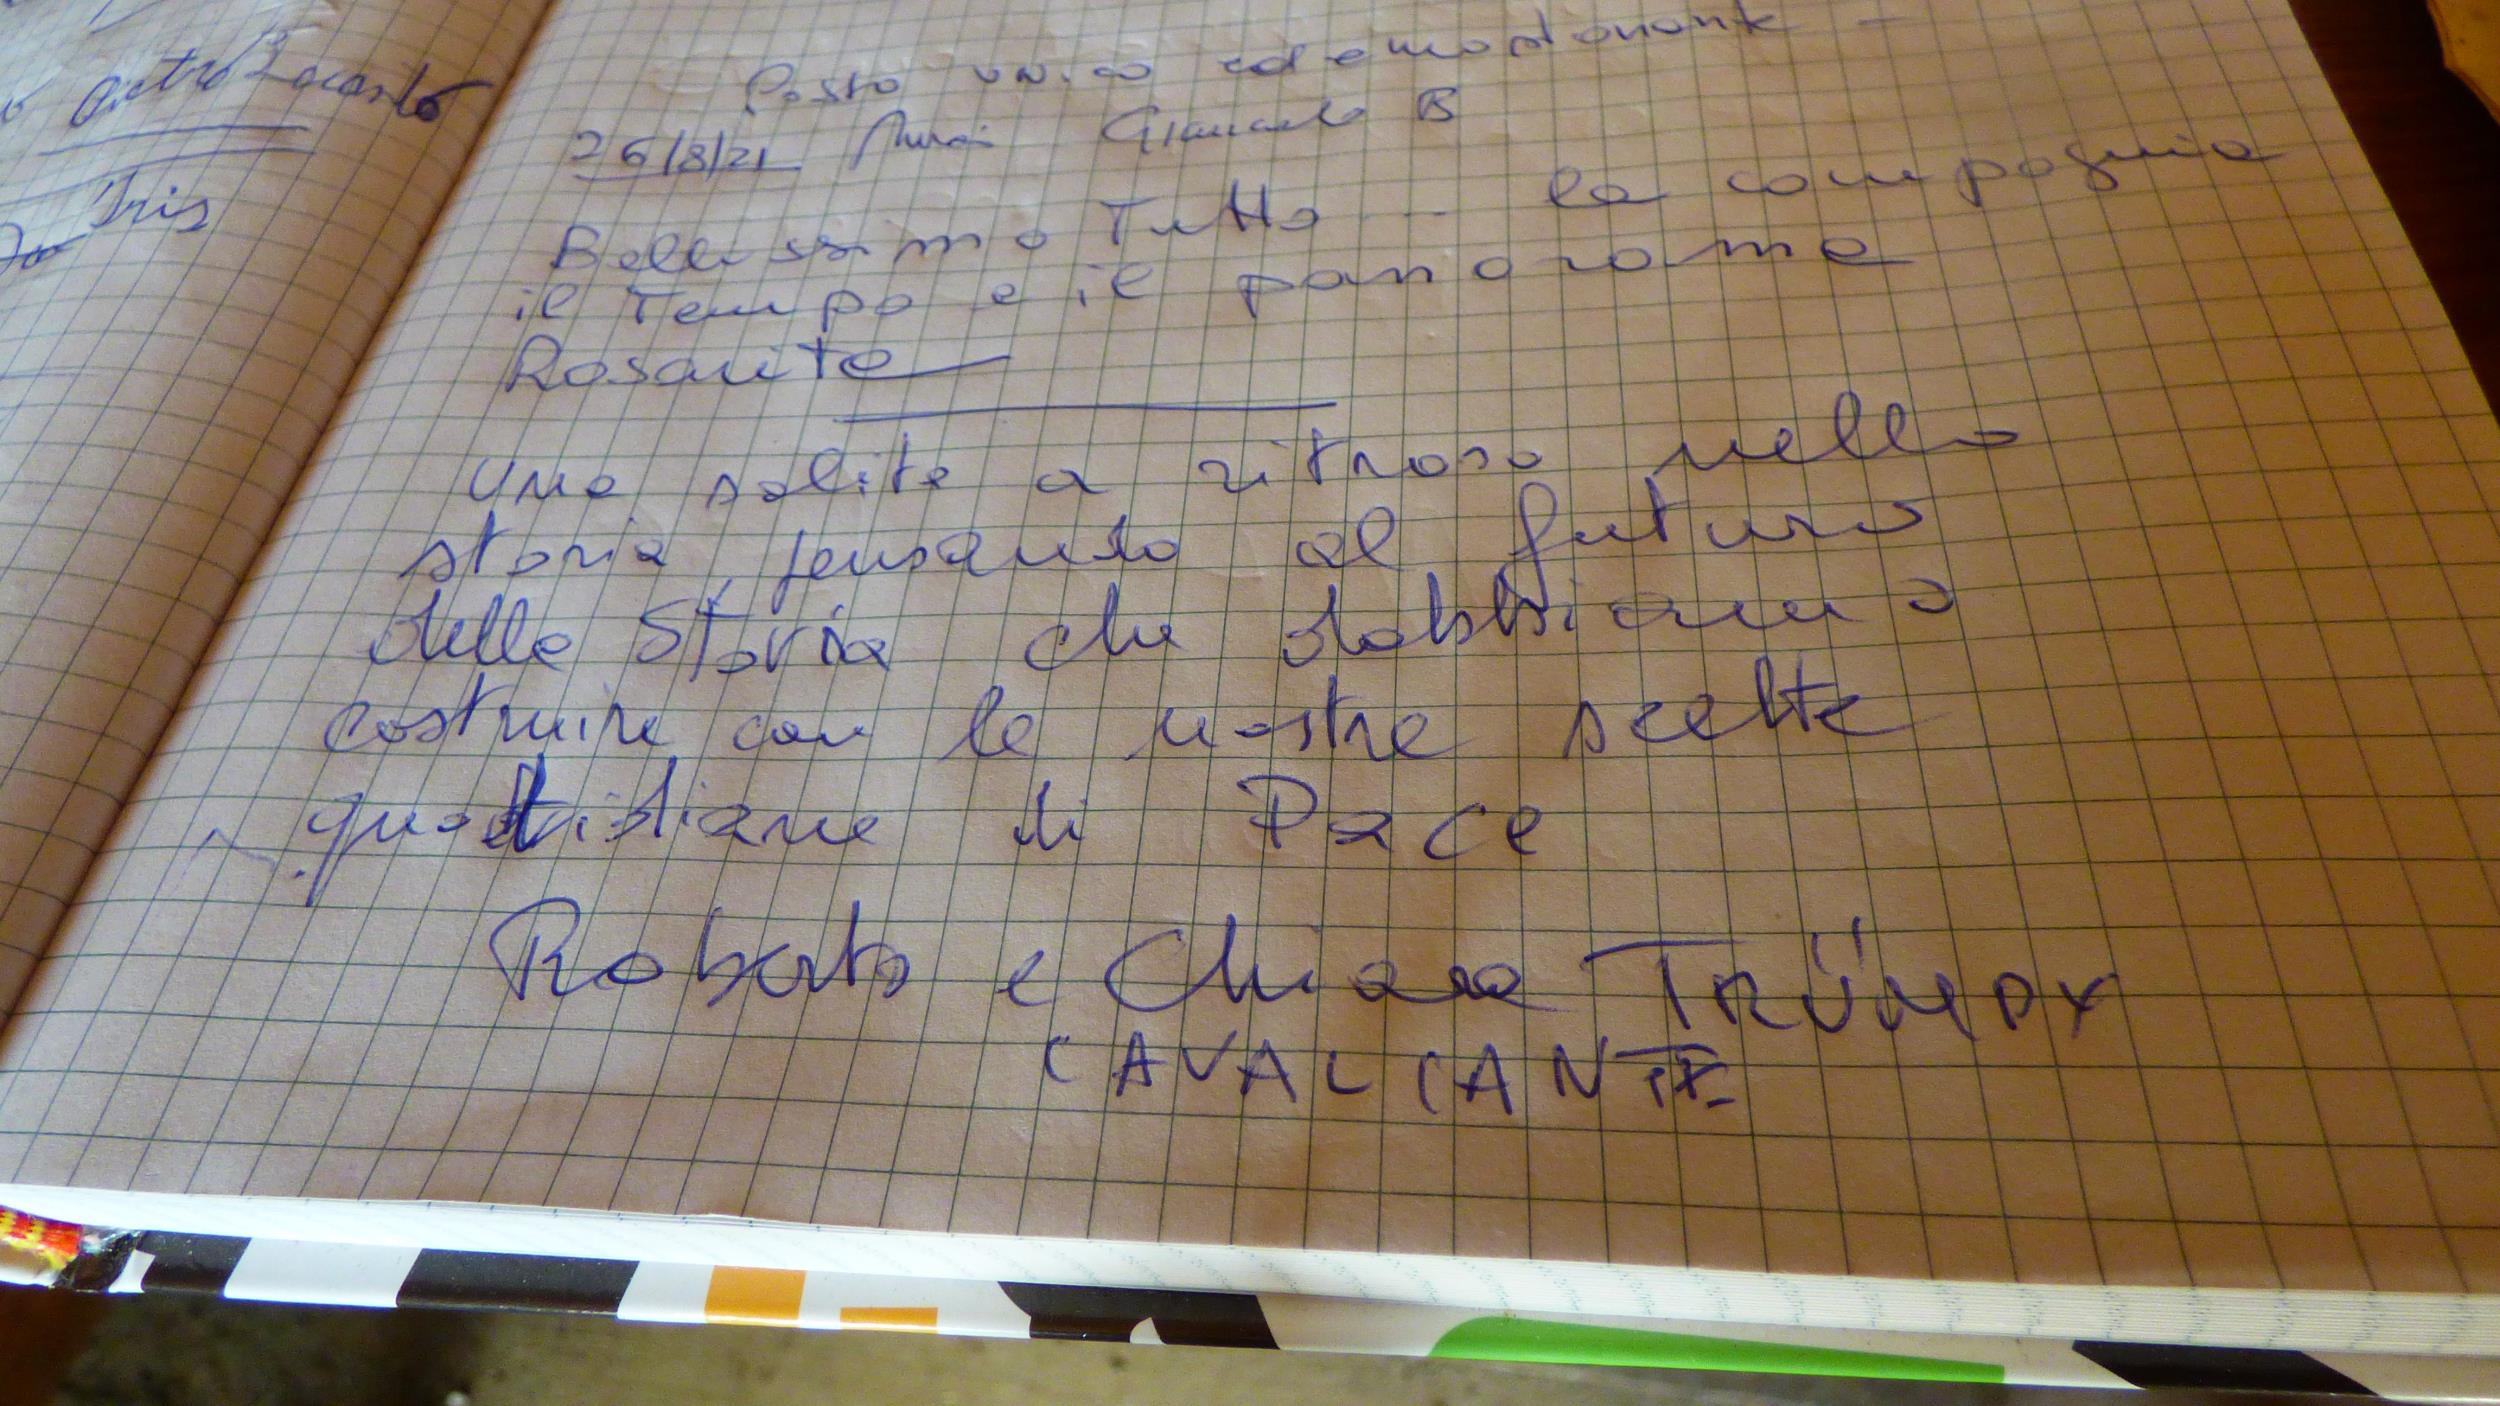 Pietro Locasto
Iris
Posto unico ed emozionante -
26/8/21 Giancarlo B
Bellissimo Tutto... la compagnia
il Tempo e il panorama
Rosarita
Una salita a ritroso nella
storia, pensando al futuro
della Storia che dobbiamo
costruire con le nostre scelte
quotidiane di Pace
Roberto e Chiara TRÜMPY
CAVALCANTE